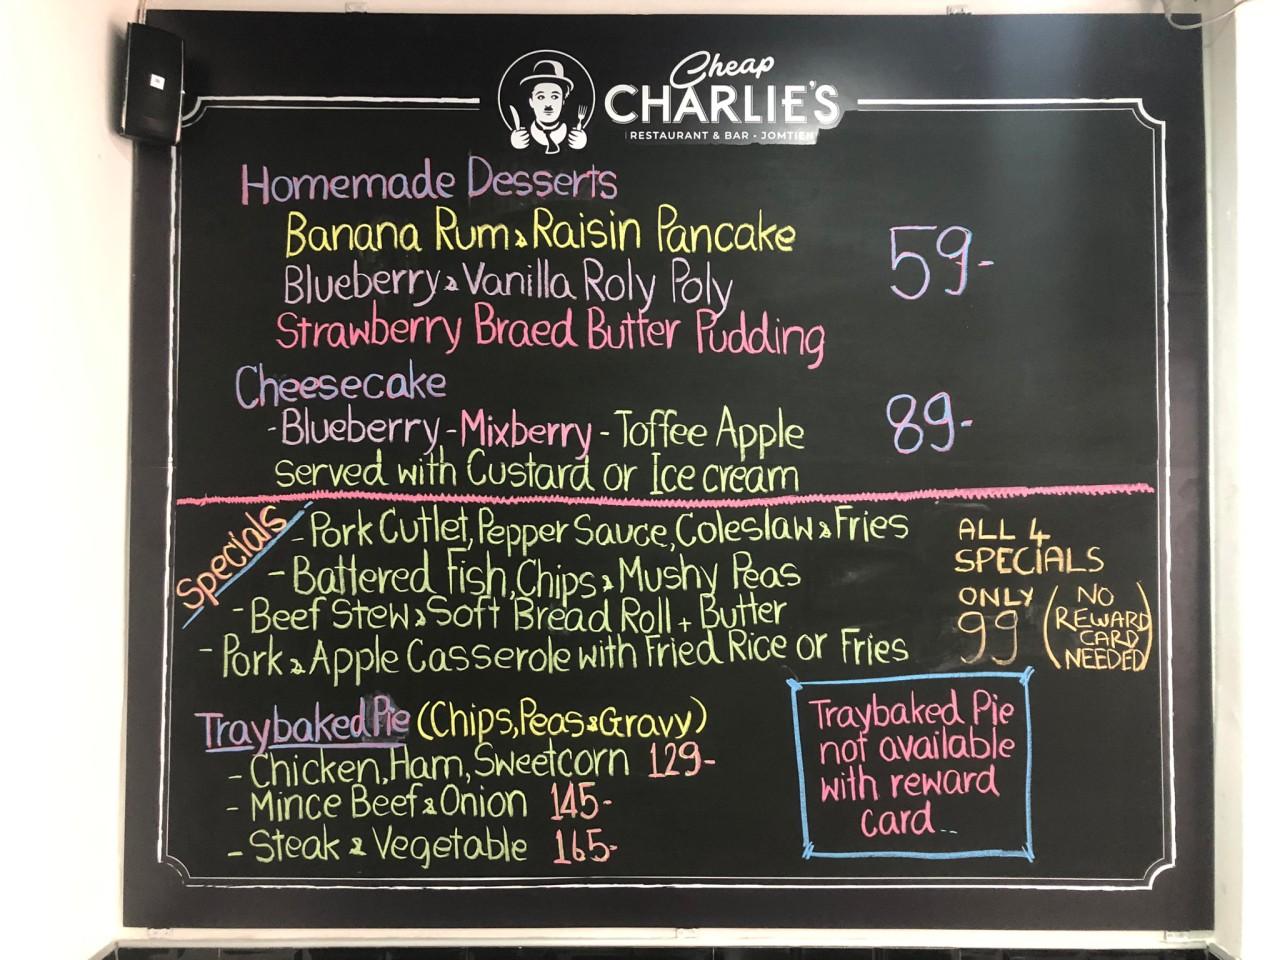 Cheap
CHARLIE'S
RESTAURANT & BAR • JOMTIEN
Homemade Desserts
Banana Rum & Raisin Pancake
Blueberry & Vanilla Roly Poly
Strawberry Braed Butter Pudding
59-
Cheesecake
-Blueberry -Mixberry -Toffee Apple
served with Custard or Ice cream
89-
Specials
- Pork Cutlet, Pepper Sauce, Coleslaw & Fries
- Battered Fish, Chips & Mushy Peas
- Beef Stew & Soft Bread Roll + Butter
- Pork & Apple Casserole with Fried Rice or Fries
ALL 4
SPECIALS
ONLY
99
(NO
REWARD
CARD
NEEDED)
Traybaked Pie (Chips, Peas & Gravy)
- Chicken, Ham, Sweetcorn 129-
- Mince Beef & Onion 145-
- Steak & Vegetable 165-
Traybaked Pie
not available
with reward
card...